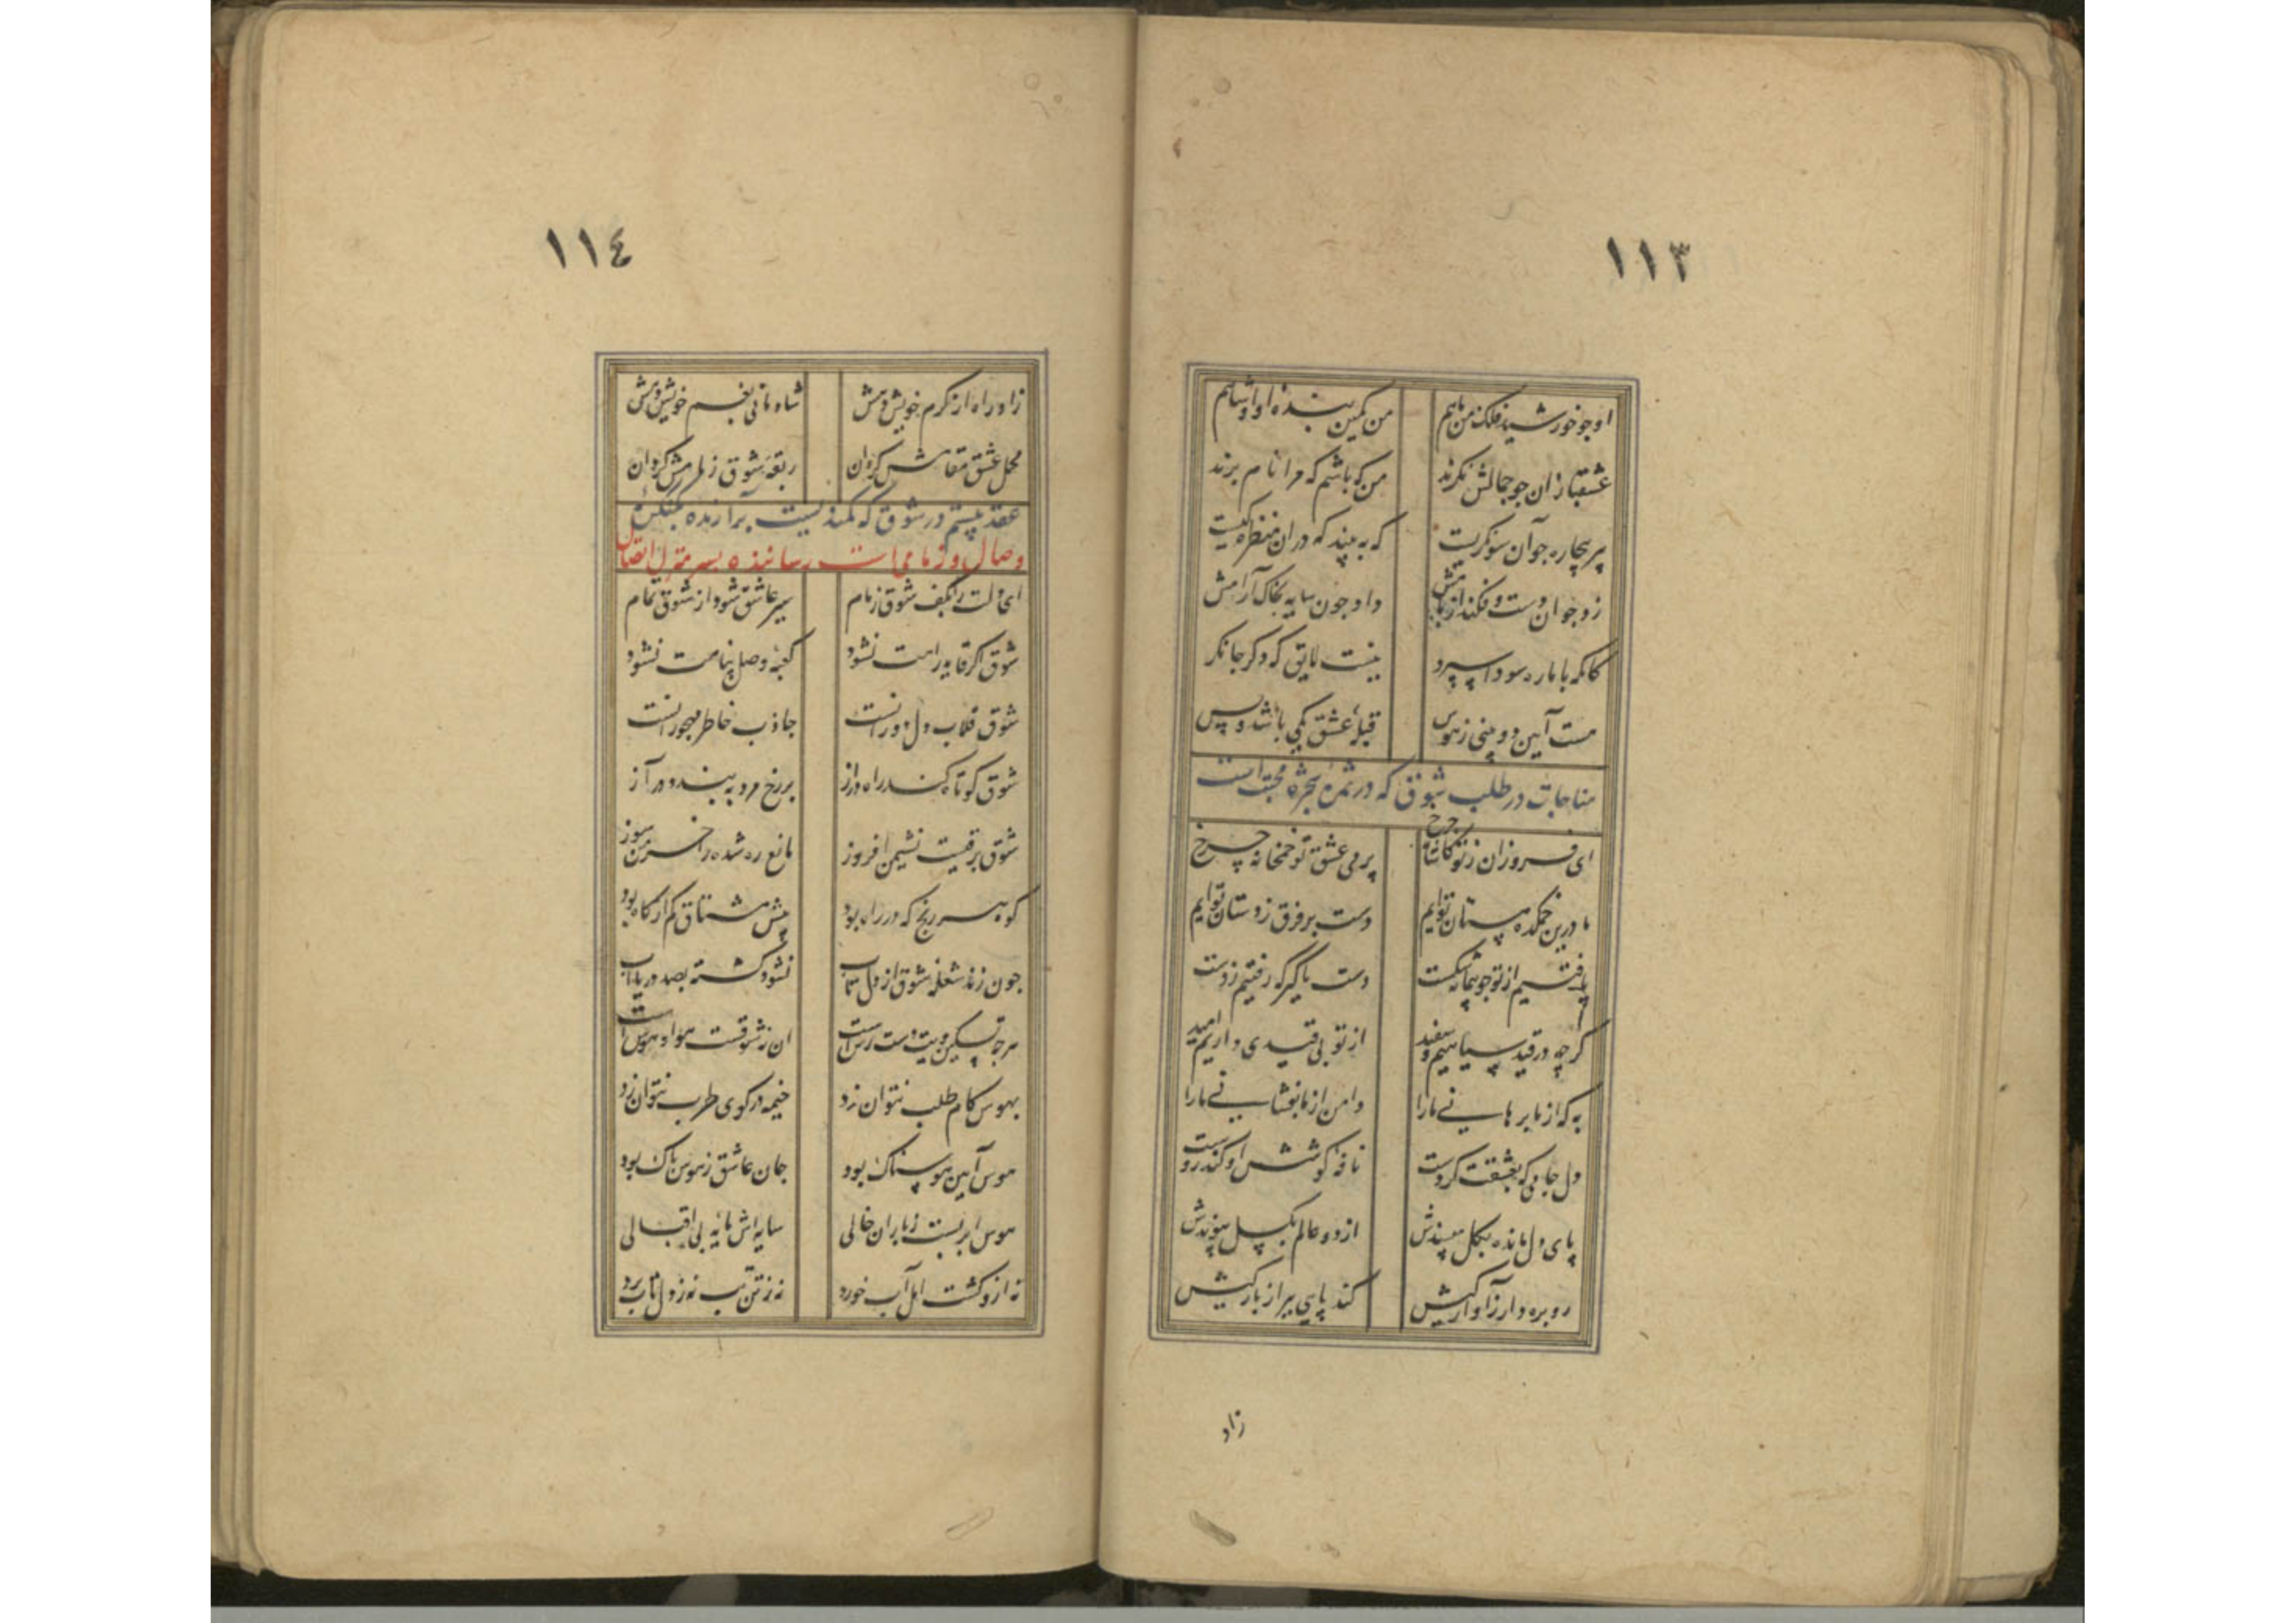 ١١٣
او چو خورشید فلک من ماهم من کمین بنده او او شاهم
عشقبازان چو جمالش نکرند من که باشم که مرا نام برند
پیر بیچاره چو آن سو نکریست که به بیند که در آن منظره کیست
زد جوان دست و فکند از بامش داد چون سایه بخاک آرامش
کانکه با ما ره سودا سپرد نیست لایق که دکر جا نکرد
هست آیین دو بینی ز هوس قبله عشق یکی باشد و بس
مناجات در طلب شوق که در ثمره شجره محبت است
ای فروزان ز تو کاشانه چرخ پر می عشق تو خمخانه چرخ
ما درین خمکده مستان توایم دست بر فرق ز دستان توایم
یافتیم از تو چو پیمانه شکست دست ما کیر که رفتیم ز دست
کرچه در قید سیاهیم و سفید از تو بی قیدی داریم امید
به که از ما برهانی ما را دامن از ما بفشانی ما را
دل جامی که بعشقت کروست نافه کوشش او کندروست
پای دل مانده بکل مپسندش از دو عالم بکسل پیوندش
رو بره دار ز آوارکیش کند پایی ببر از بارکیش
زاد
١١٤
زاد راه از کرم خویش دهش شادمانی بغم خویش دهش
محمل عشق مقامش کردان ربقه شوق زمامش کردان
عقد بیستم در شوق که کمندیست برآرنده بکنکره
وصال و زمامی است رساننده بسر منزل اتصال
ای دلت را بکف شوق زمام سیر عاشق شود از شوق تمام
شوق اکر قاید راهت نشود کعبه وصل پناهت نشود
شوق قلاب دل دورانست جاذب خاطر مهجورانست
شوق کوتاه کند راه دراز بر رخ مرد به بندد در آز
شوق برقیست نشیمن افروز مانع ره شده را خرمن سوز
کوه هر رنج که در راه بود پیش مشتاق کم از کاه بود
چون زند شعله شوق از دل تاب نشود کشته بصد دریا آب
هرچه تسکین دهیت دست رس است آن نه شوقست هوا و هوس است
بهوس کام طلب نتوان زد خیمه در کوی طرب نتوان زد
هوس آیین هوسناک بود جان عاشق ز هوس پاک بود
هوس ابریست ز باران خالی سایه اش مایه بی اقبالی
نه ازو کشت امل آب خورد نه ز تن تب نه ز دل تاب برد